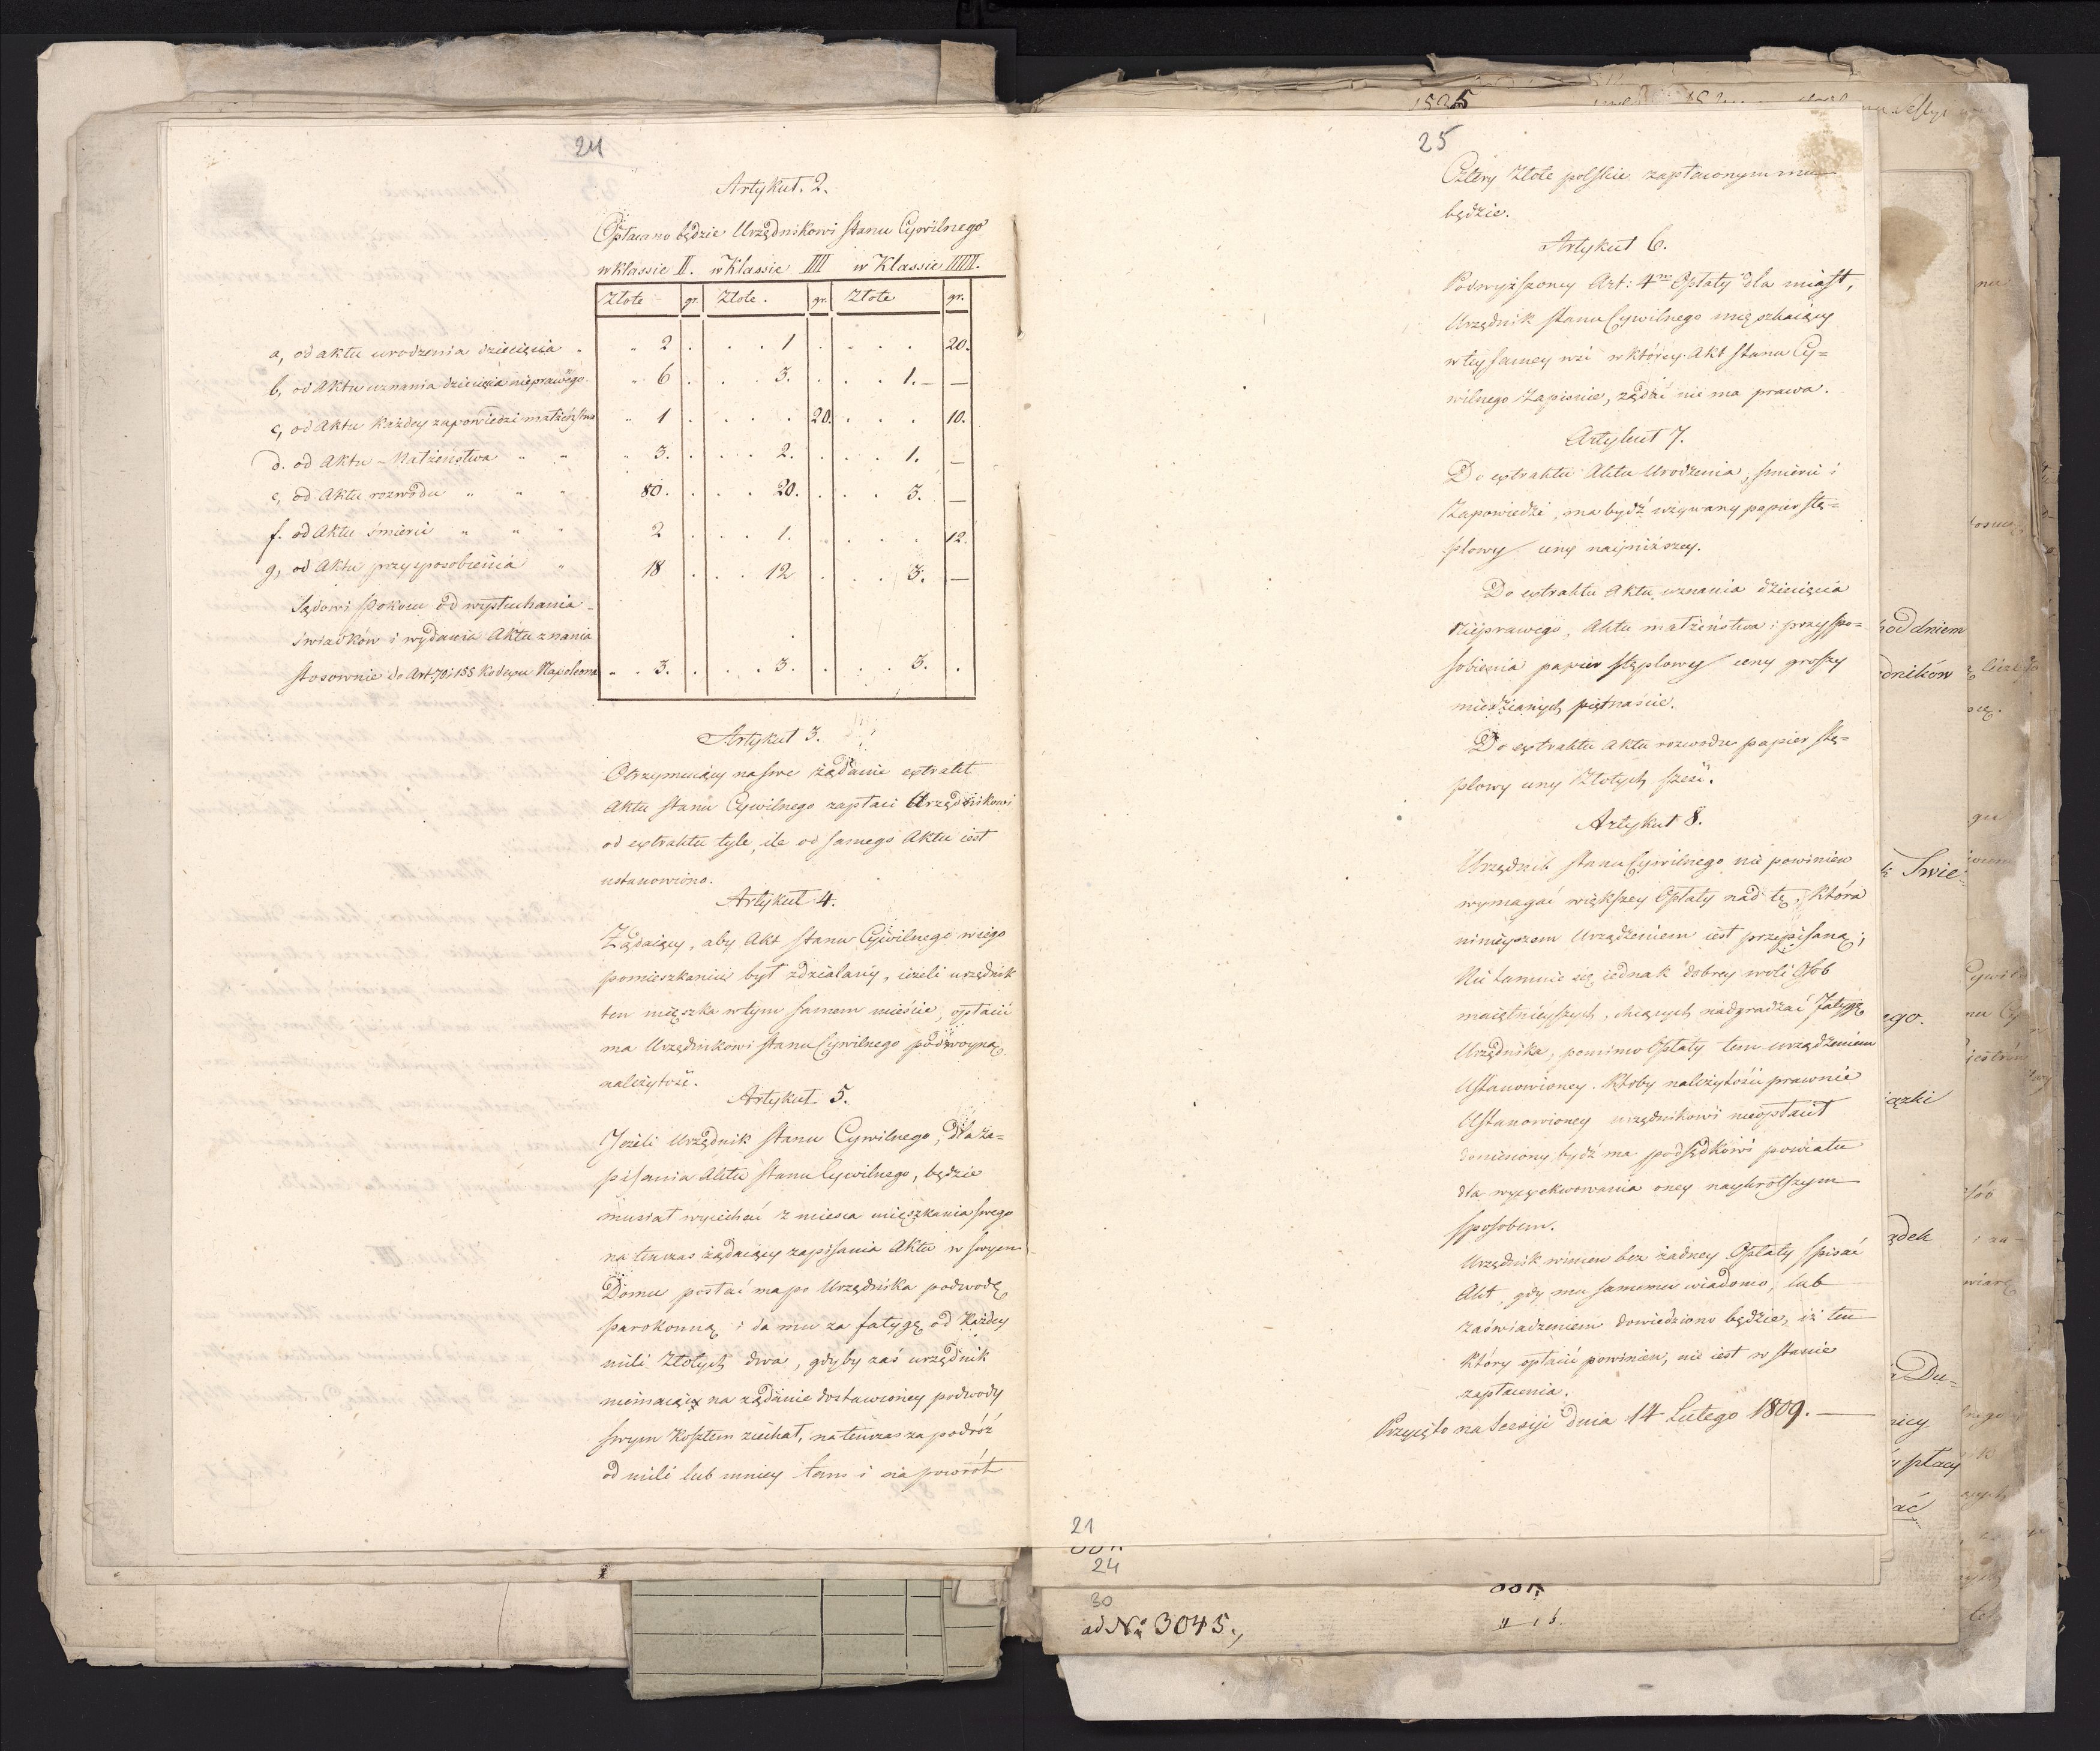 24
Artykuł. 2.
Opłacano będzie Urzędnikowi Stanu Cywilnego
w klassie II. w Klassie IIII w Klassie IIIIII.
Złote gr. Złote. gr. Złote gr.
a, od aktu urodzenia dziecięcia „ „ 2 . . . 1 . . . . 20.
b, od Aktu uznania dziecięcia nieprawego. „ 6 . . . 3. . . . 1. — —
c, od Aktu Każdey zapowiedzi małżeństwa „ 1 . . . . 20. . . . 10.
d. od Aktu – Małżeństwa „ „ „ 3. . . . 2. . . . 1. —
e, od Aktu rozwodu „ „ „ 80. . . . 20. . . . 3. —
f. od Aktu śmierci „ „ „ 2 . . . 1. . . . . 12.
g, od Aktu przysposobienia „ 18 . . . 12 . . . 3. —
Sędowi Pokoiu od wysłuchania –
świadków i wydania Aktu znania
stosownie do Art. 70 i 155 Kodexu Napoleona „ „ 3. . . . 3. . . . 3. .
Artykuł 3.
Otrzymuiący na swe żądanie extrakt
Aktu Stanu Cywilnego zapłaci Urzędnikowi
od extraktu tyle, ile od samego Aktu iest
ustanowiono.
Artykuł 4.
Żądaiący, aby Akt Stanu Cywilnego w iego
pomieszkaniu był zdziałany, ieżeli urzędnik
ten mięszka w tym samem mieście, opłacić
ma Urzędnikowi Stanu Cywilnego podwoyną
należytość.
Artykuł. 5.
Jeżeli Urzędnik Stanu Cywilnego, dla za=
pisania Aktu Stanu Cywilnego, będzie
musiał wyiechać z miesca mięszkania swego
na tenczas żądaiący zapisania Aktu w swym
Domu posłać ma po Urzędnika podwodę
parokonną i da mu za fatygę od Każdey
mili Złotych dwa, gdyby zaś urzędnik
niemaiąc na żądanie dostawioney podwody
swym Kosztem ziechał, na tenczas za podróż
od mili lub mniey tam i na powrót
25
Cztery Złote polskie zapłaconym mu
będzie.
Artykuł 6.
Podwyższoney Art: 4m Opłaty dla miast,
Urzędnik Stanu Cywilnego mięszkaiący
w tey samey wsi w którey Akt Stanu Cy=
wilnego Zapisuie, żądać nie ma prawa.
Artykuł 7.
Do extraktu Aktu Urodzenia, śmierci i
Zapowiedzi, ma bydź używany papier stę=
plowy ceny nayniższey.
Do extraktu Aktu uznania dziecięcia
Nieprawego, Aktu małżeństwa i przyspo=
sobienia papier stęplowy ceny groszy
miedzianych piętnaście.
Do extraktu Aktu rozwodu papier stę=
plowy ceny Złotych sześć.
Artykuł 8.
Urzędnik Stanu Cywilnego nie powinien
wymagać większey Opłaty nad tę, która
ninieyszem Urządzeniem iest przepisaną;
Nie tamuie się iednak dobrey woli Osób
maiętnieyszych, chcących nadgradzać fatygę
Urzędnika, pomimo Opłaty tem urządzeniem
Ustanowioney. Ktoby należytości prawnie
Ustanowioney urzędnikowi nieopłacił
doniesiony bydź ma podsędkowi powiatu
dla wyexekwowania oney naykrótszym
sposobem.
Urzędnik winien bez żadney Opłaty spisać
Akt, gdy mu samemu wiadomo, lub
zaświadzeniem dowiedziono będzie, iż ten
który opłacić powinien, nie iest w stanie
zapłacenia.
Przyięto na Sessyi dnia 14 Lutego 1809. —
21
24
30
ad No 3045.,